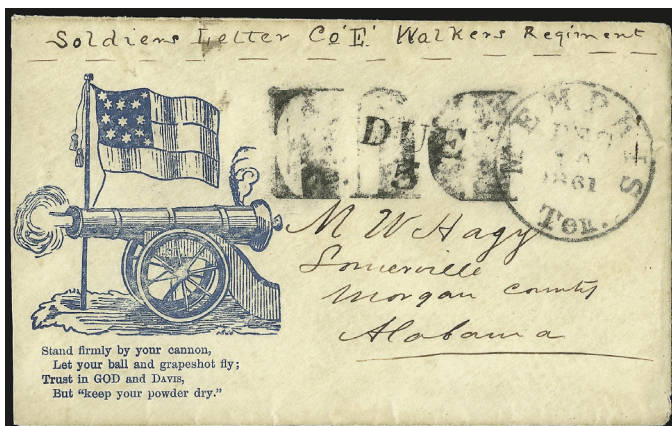 Soldiers Letter Co 'E' Walkers Regiment
DUE
5
MEMPHIS
DEC
1861
Ten.
M W Hagy
Somerville
Morgan County
Alabama
Stand firmly by your cannon,
Let your ball and grapeshot fly;
Trust in GOD and DAVIS,
But "keep your powder dry."